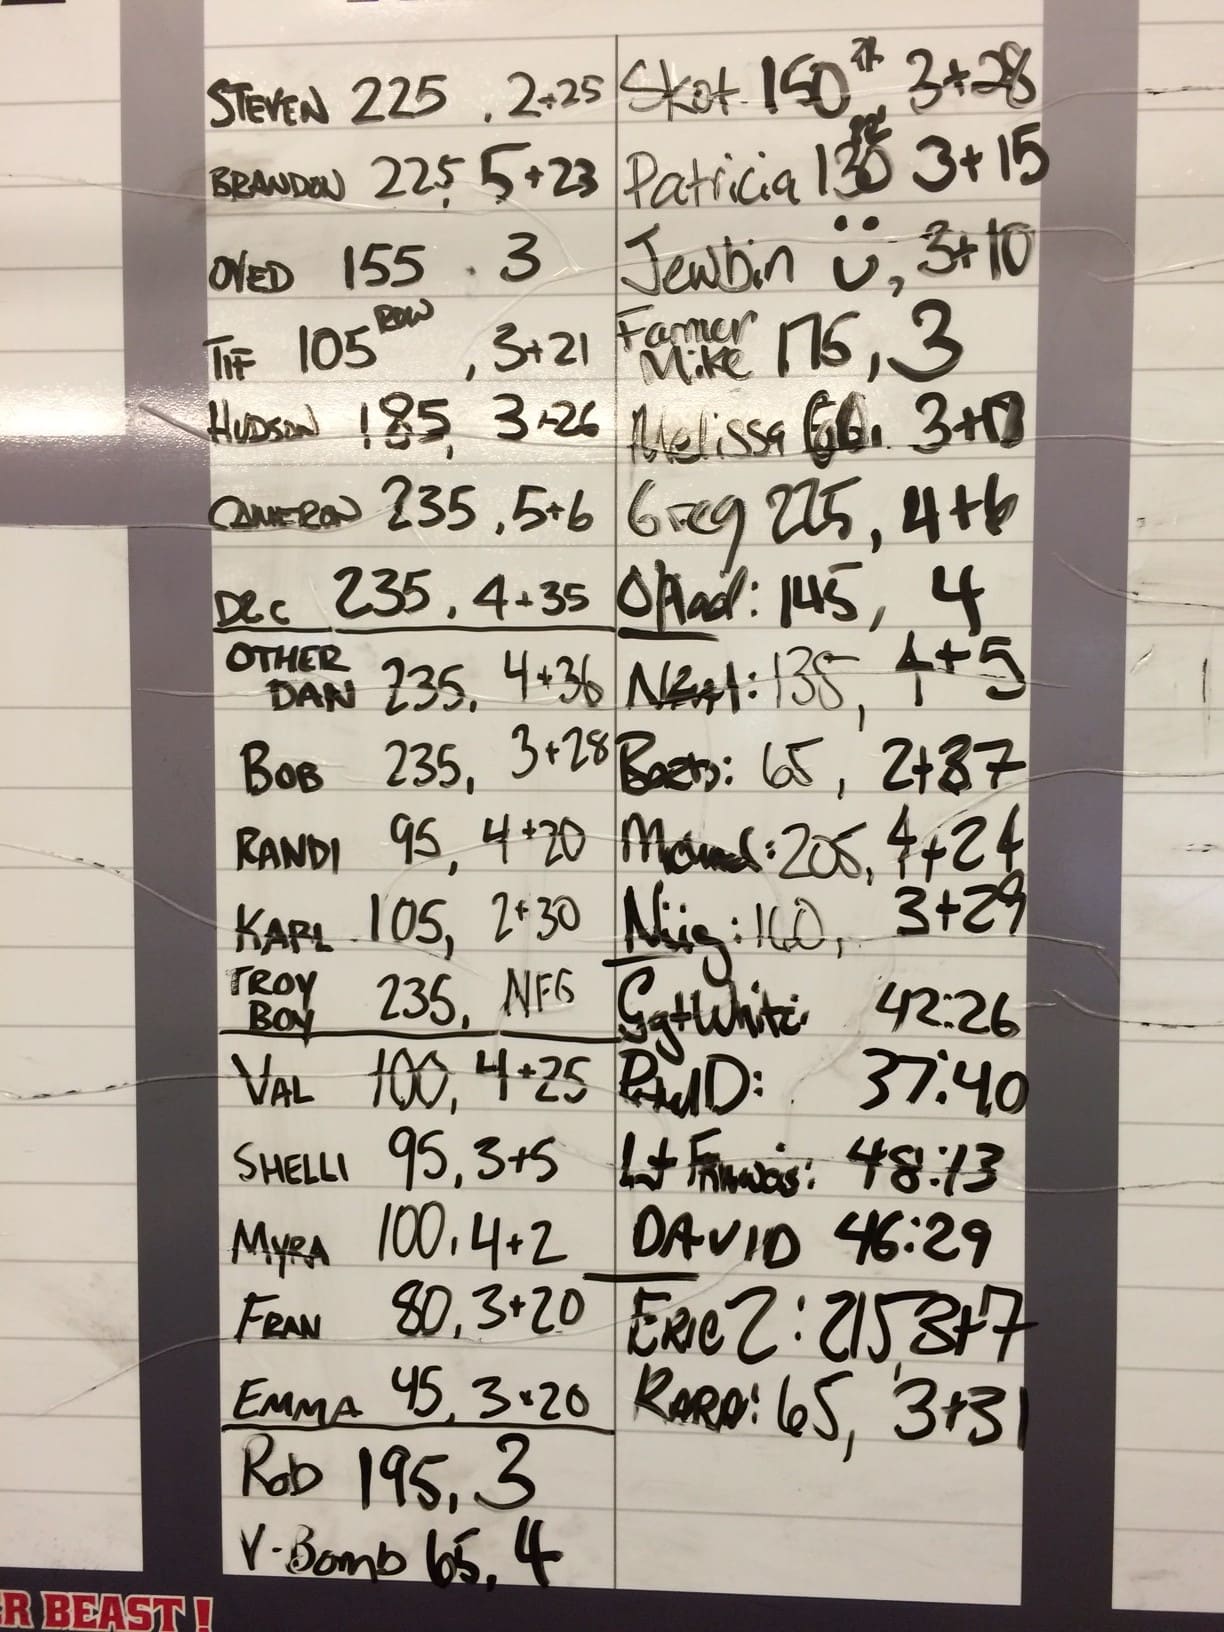 STEVEN 225, 2+25
BRANDON 225, 5+23
OVED 155 . 3
TIF 105 ROW, 3+21
HUDSON 185, 3+26
CAMERON 235, 5+6
235, 4+35
OTHER
DAN 235, 4+36
BOB 235, 3+28
RANDI 95, 4+20
KARL 105, 2+30
TROY
BOY 235, NFG
VAL 100, 4+25
SHELLI 95, 3+5
MYRA 100, 4+2
FRAN 80, 3+20
EMMA 45, 3+20
Rob 195, 3
V-Bomb 65, 4
Skot 150 3+28
Patricia 130 3+15
Jewbin ü, 3+10
Farmer
Mike 175, 3
Melissa
Greg 225, 4+6
145, 4
135, 4+5
65, 2+37
205, 4+24
Niig: 160, 3+29
Sgt White 42:26
37:40
Lt 48:13
DAVID 46:29
ERIC 2: 215, 3+7
65, 3+31
R BEAST!